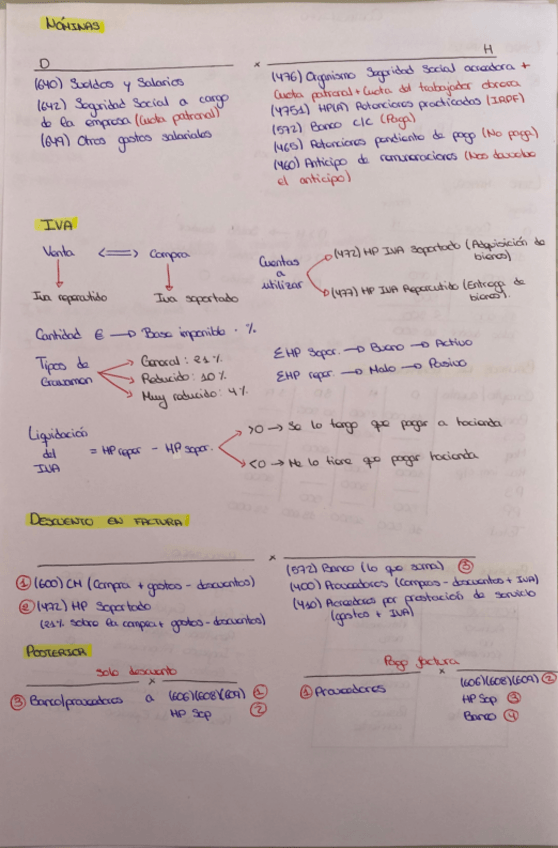 NÓMINAS
D x H
(640) Sueldos y Salarios
(642) Seguridad Social a cargo
de la empresa (Cuota patronal)
(649) Otros gastos salariales
(476) Organismo Seguridad Social acreedora +
Cuota patronal + Cuota del trabajador obrera
(4751) HP(A) Retenciones practicadas (IRPF)
(572) Banco c/c (Paga)
(465) Retenciones pendiente de pago (No paga)
(460) Anticipo de remuneraciones (Nos devuelve
el anticipo)
IVA
Venta <=> Compra
Iva repercutido Iva soportado
Cuentas
a
utilizar
(472) HP IVA Soportado (Adquisición de
bienes)
(477) HP IVA Repercutido (Entrega de
bienes).
Cantidad € → Base imponible · %
Tipos de
Gravamen
General: 21%
Reducido: 10%
Muy reducido: 4%
ΣHP Sopor. → Bueno → Activo
ΣHP reper. → Malo → Pasivo
Liquidación
del
IVA
= HP reper - HP sopor.
>0 → Se lo tengo que pagar a hacienda
<0 → Me lo tiene que pagar hacienda
DESCUENTO EN FACTURA
x
① (600) CM (Compra + gastos - descuentos)
② (472) HP Soportado
(21% sobre la compra + gastos - descuentos)
(572) Banco (lo que suma) ③
(400) Proveedores (Compras - descuentos + IVA)
(410) Acreedores por prestación de servicio
(gastos + IVA)
POSTERIOR
Solo descuento
x
③ Banco/proveedores a (606)(608)(609) ①
HP Sop ②
Pago factura
x
① Proveedores
(606)(608)(609) ②
HP Sop ③
Banco ④